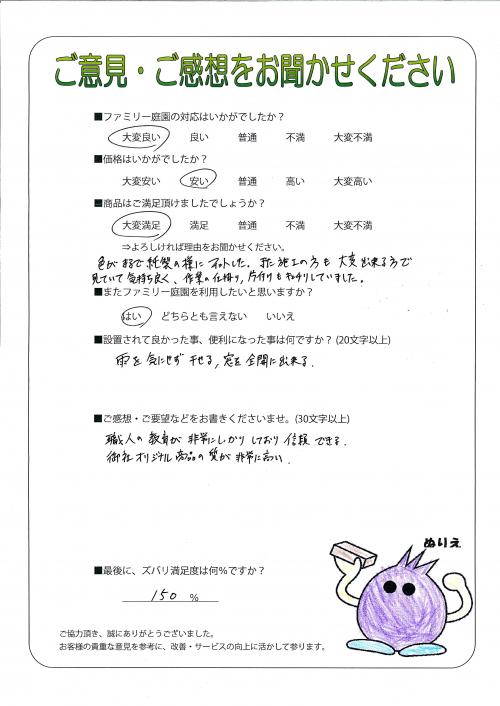 ご意見・ご感想をお聞かせください
■ファミリー庭園の対応はいかがでしたか？
大変良い 良い 普通 不満 大変不満
■価格はいかがでしたか？
大変安い 安い 普通 高い 大変高い
■商品はご満足頂けましたでしょうか？
大変満足 満足 普通 不満 大変不満
⇒よろしければ理由をお聞かせください。
色がまるで純製の様にマットした。また施工の方も大変出来る方で
見ていて気持ち良く、作業の仕掛り,片付もキッチリしていました。
■またファミリー庭園を利用したいと思いますか？
はい どちらとも言えない いいえ
■設置されて良かった事、便利になった事は何ですか？(20文字以上)
雨を気にせず干せる,窓を全開に出来る.
■ご感想・ご要望などをお書きくださいませ。(30文字以上)
職人の教育が非常にしっかりしており信頼できる.
御社オリジナル商品の質が非常に高い.
ぬりえ
■最後に、ズバリ満足度は何%ですか？
150 %
ご協力頂き、誠にありがとうございました。
お客様の貴重な意見を参考に、改善・サービスの向上に活かして参ります。